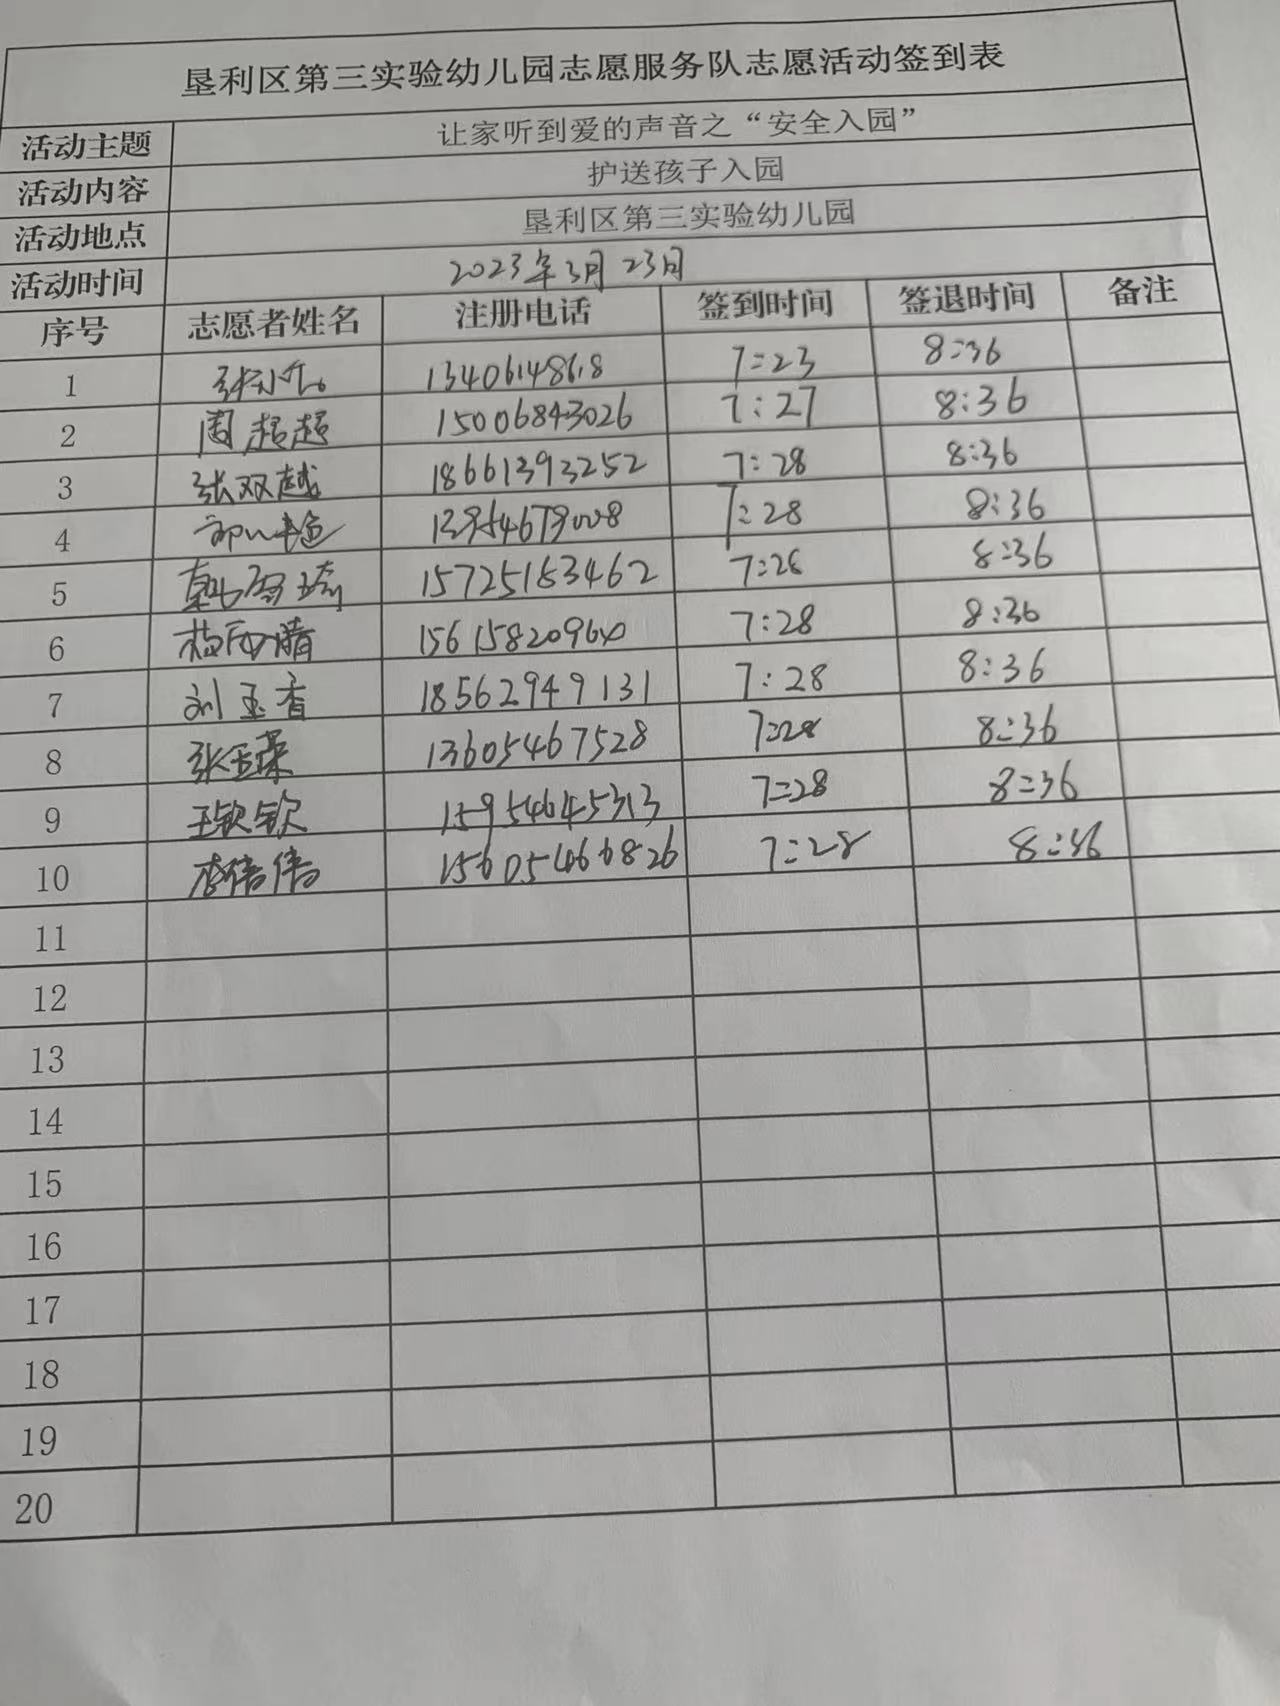 垦利区第三实验幼儿园志愿服务队志愿活动签到表
活动主题 让家听到爱的声音之“安全入园”
活动内容 护送孩子入园
活动地点 垦利区第三实验幼儿园
活动时间 2023年3月23日
序号 志愿者姓名 注册电话 签到时间 签退时间 备注
1 7:23 8:36
2 周超超 15006843026 7:27 8:36
3 张双越 18661393252 7:28 8:36
4 7:28 8:36
5 15725163462 7:28 8:36
6 7:28 8:36
7 刘玉香 18562949131 7:28 8:36
8 13605467528 7:28 8:36
9 王钦钦 15954645313 7:28 8:36
10 李倩倩 15605466826 7:28 8:36
11
12
13
14
15
16
17
18
19
20